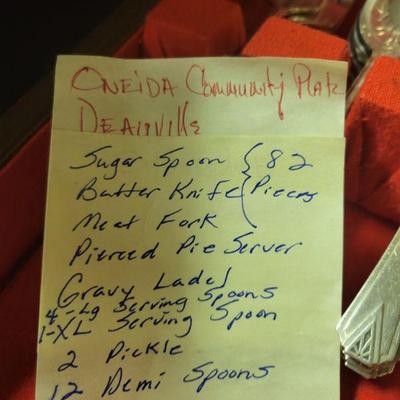 ONEIDA Community Plate
DEAUVille
Sugar Spoon { 82
Butter Knife { Pieces
Meat Fork
Pierced Pie Server
Gravy Ladel
4-Lg Serving Spoons
1-XL Serving Spoon
2 Pickle
12 Demi Spoons